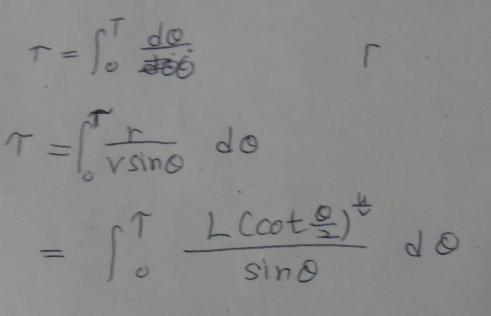 τ = ∫₀ᵀ dθ/ Γ
τ = ∫₀ᵀ r/(v sinθ) dθ
= ∫₀ᵀ L(cot θ/2)^(u/v)/sinθ dθ